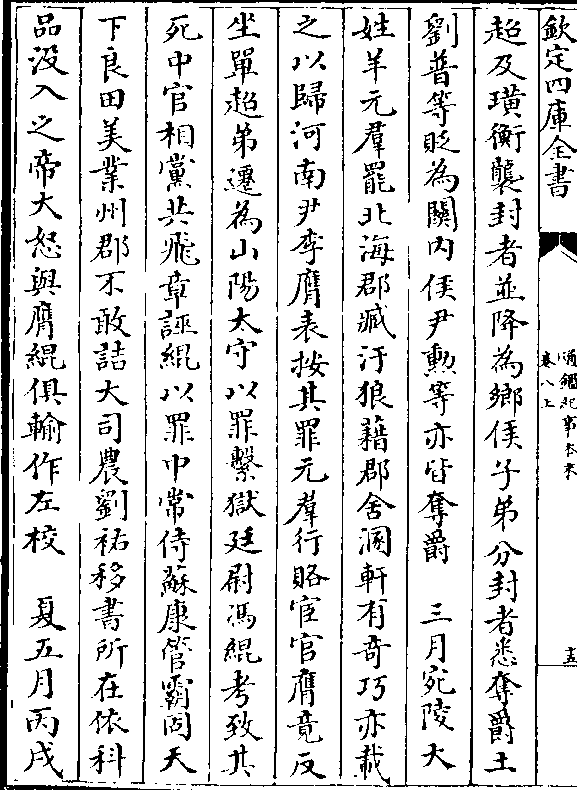 欽定四庫全書
通鑑紀事本末
卷八上
十五
超及璜衡襲封者並降為鄉侯子弟分封者悉奪爵土
劉普等貶為關內侯尹勲等亦皆奪爵　三月宛陵大
姓羊元羣罷北海郡臧汙狼藉郡舍溷軒有奇巧亦載
之以歸河南尹李膺表按其罪元羣行賂宦官膺竟反
坐單超弟遷為山陽太守以罪繫獄廷尉馮緄考致其
死中官相黨共飛章誣緄以罪中常侍蘇康管霸固天
下良田美業州郡不敢詰大司農劉祐移書所在依科
品没入之帝大怒與膺緄俱輸作左校　夏五月丙戌